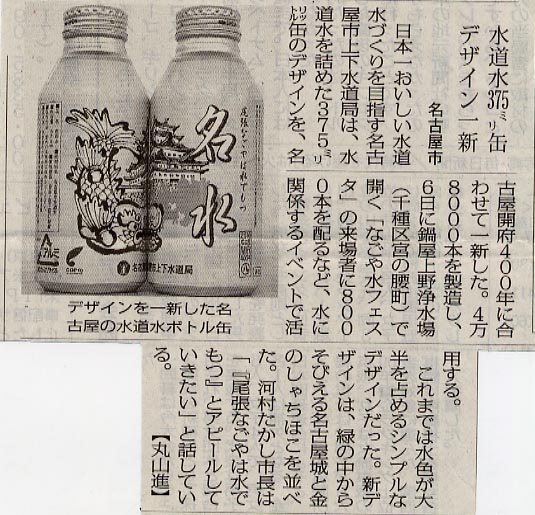 水道水375㍉㍑缶
デザイン一新
名古屋市
日本一おいしい水道
水づくりを目指す名古
屋市上下水道局は、水
道水を詰めた375㍉
㍑缶のデザインを、名
古屋開府400年に合
わせて一新した。4万
8000本を製造し、
6日に鍋屋上野浄水場
（千種区宮の腰町）で
開く「なごや水フェス
タ」の来場者に800
0本を配るなど、水に
関係するイベントで活
用する。
これまでは水色が大
半を占めるシンプルな
デザインだった。新デ
ザインは、緑の中から
そびえる名古屋城と金
のしゃちほこを並べ
た。河村たかし市長は
「『尾張なごやは水で
もつ』とアピールして
いきたい」と話してい
る。
【丸山進】
尾張なごやは水でもつ
名水
アルミ
名古屋市上下水道局
デザインを一新した名
古屋の水道水ボトル缶